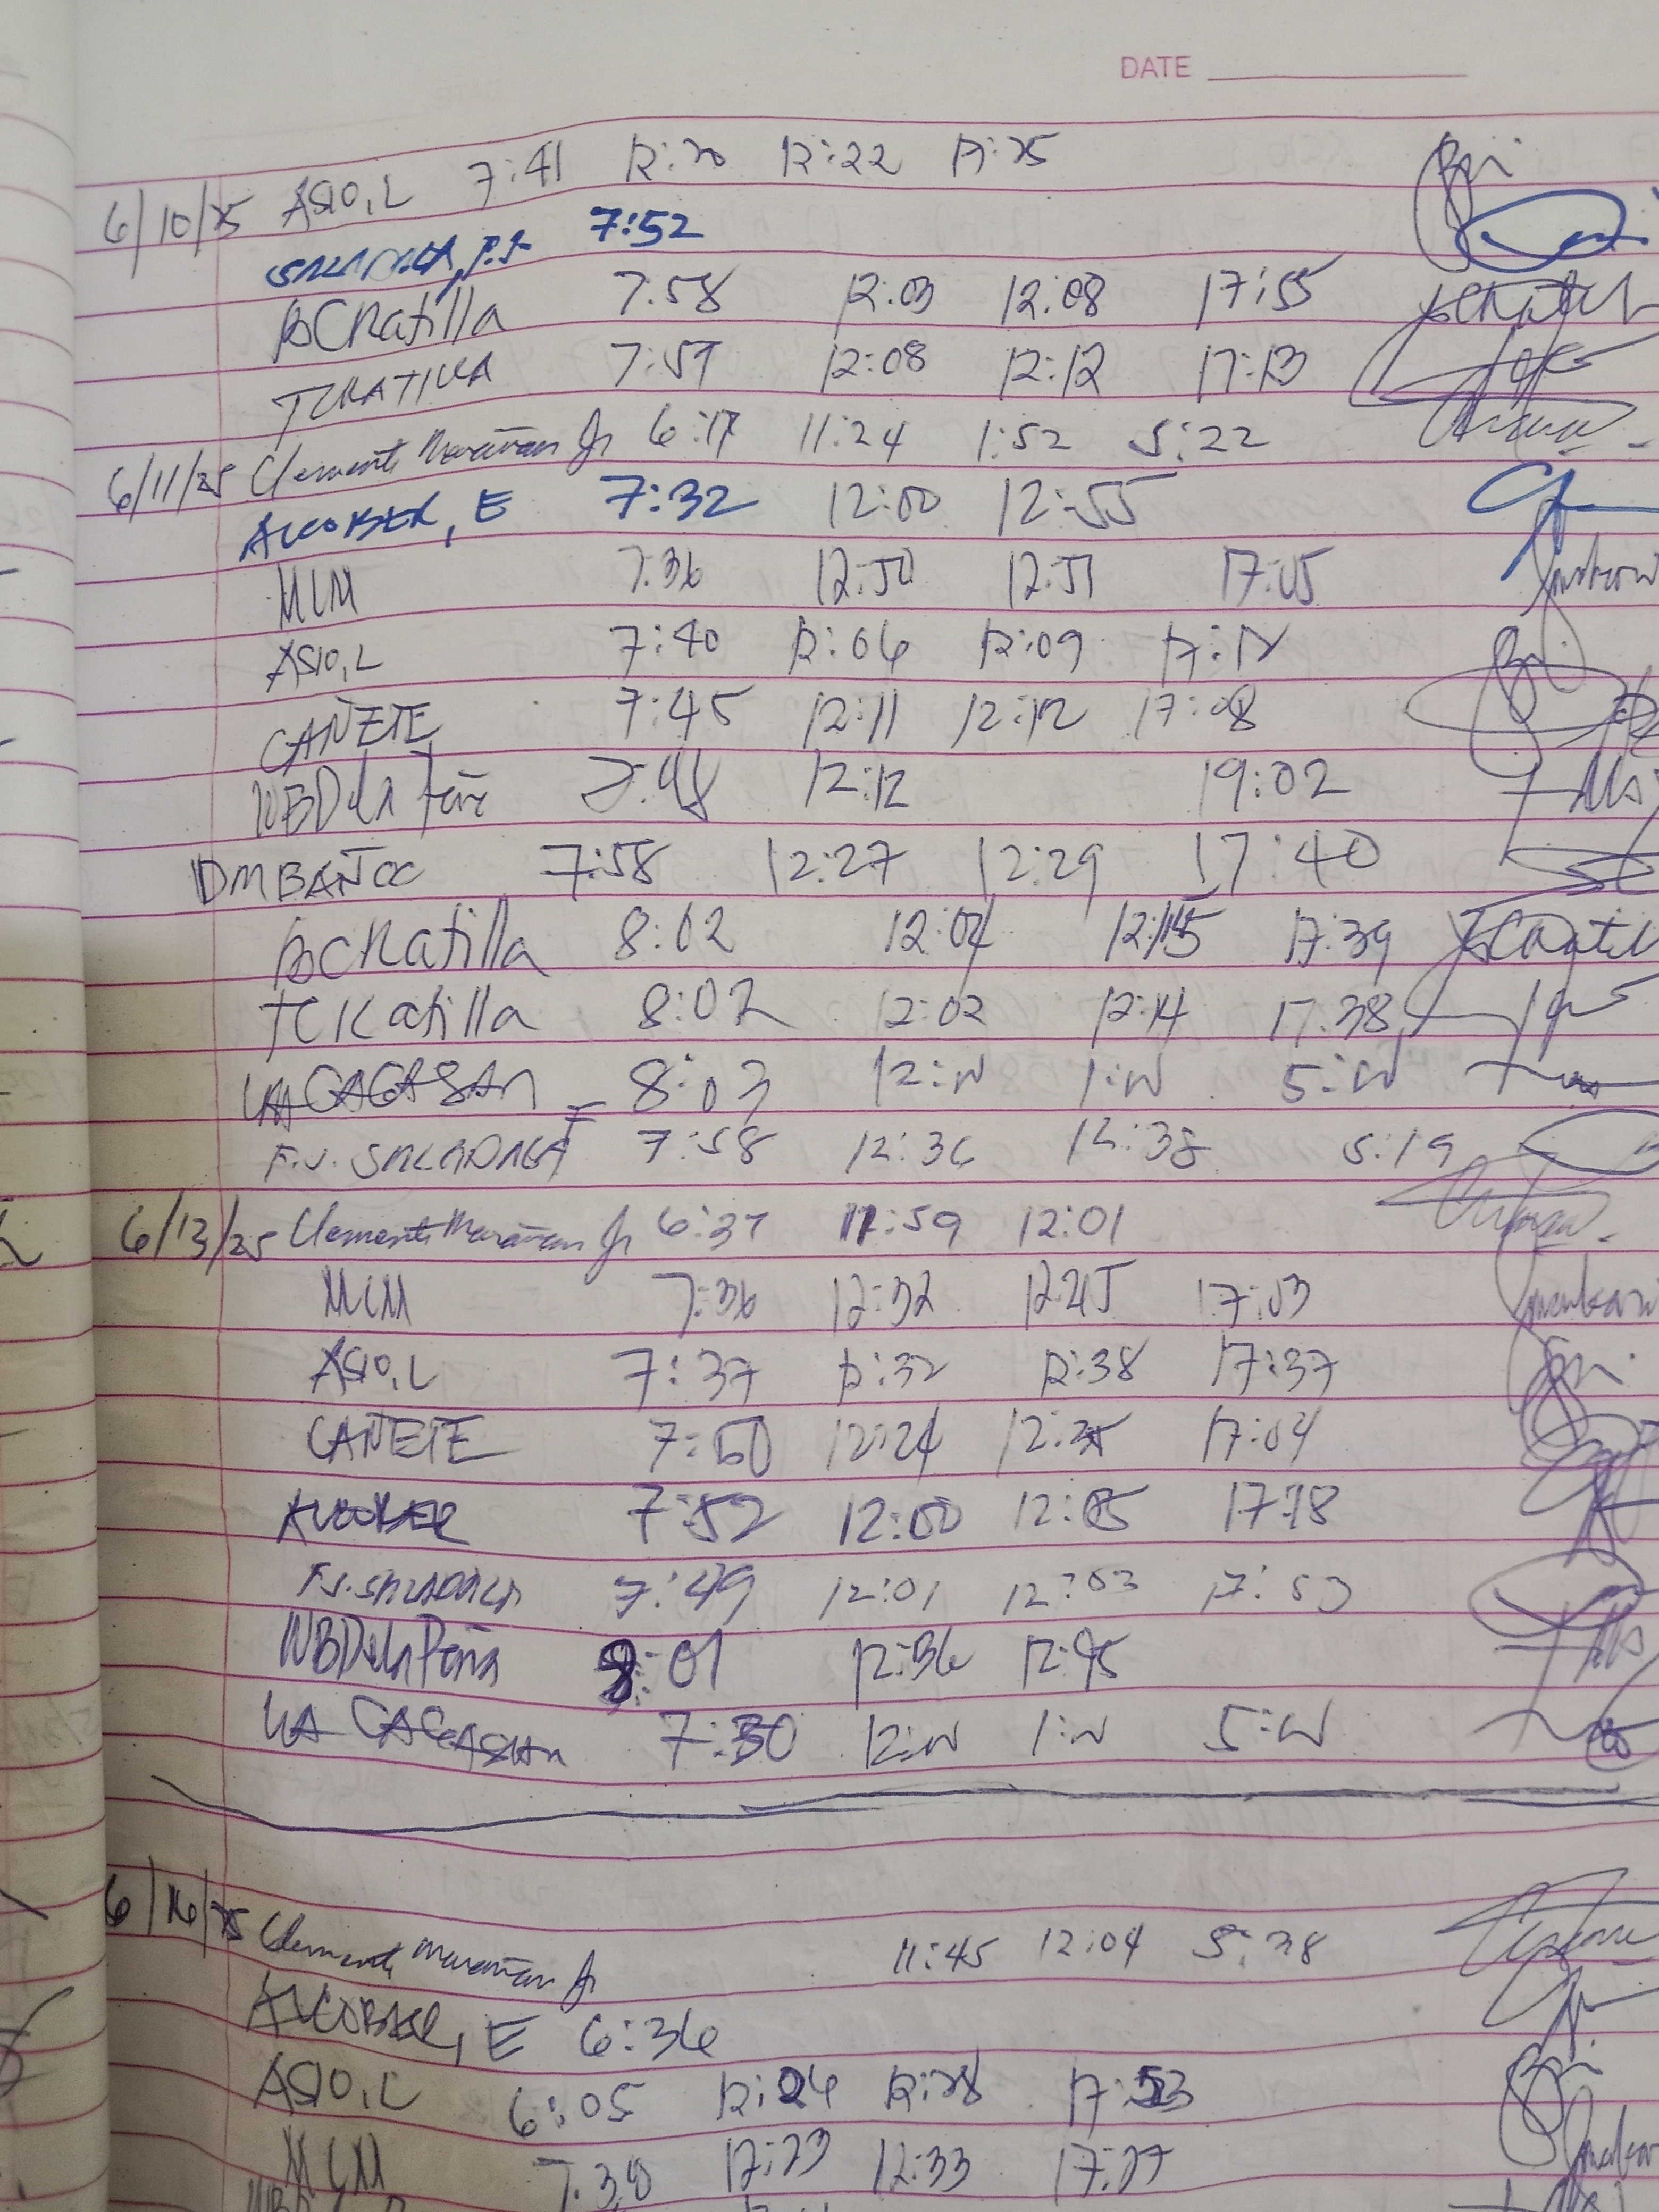 DATE
6/10/25 ASIO, L 7:41 12:20 12:22 17:25
SALADAGA, F.J. 7:52
BCRatilla 7:58 12:03 12:08 17:55
TCRATILLA 7:57 12:08 12:12 17:13
6/11/25 Clemente Marañan Jr 6:17 11:24 1:52 5:22
ALCOBER, E 7:32 12:00 12:55
MCM 7:36 12:50 12:51 17:05
ASIO, L 7:40 12:06 12:09 17:12
CAÑETE 7:45 12:11 12:12 17:08
NBDela Peña 7:48 12:12 19:02
DMBAÑOC 7:58 12:27 12:29 17:40
BCRatilla 8:02 12:04 12:15 17:39
TCRatilla 8:02 12:02 12:14 17:38
CAGASAN 8:03 12:00 1:00 5:00
F.J. SALADAGA 7:58 12:36 12:38 5:19
6/13/25 Clemente Marañan Jr 6:37 11:59 12:01
MCM 7:36 12:32 12:45 17:03
ASIO, L 7:37 12:32 12:38 17:37
CAÑETE 7:50 12:24 17:04
ALCOBER 7:52 12:00 12:05 17:18
F.J. SALADAGA 7:49 12:01 12:03 17:53
NBDela Peña 8:01 12:36 12:45
CAGASAN 7:30 12:00 1:00 5:00
6/16/25 Clemente Marañan Jr 11:45 12:04 5:38
ALCOBER, E 6:36
ASIO, L 6:05 12:24 12:28 17:53
MCM 7:38 12:23 12:33 17:27